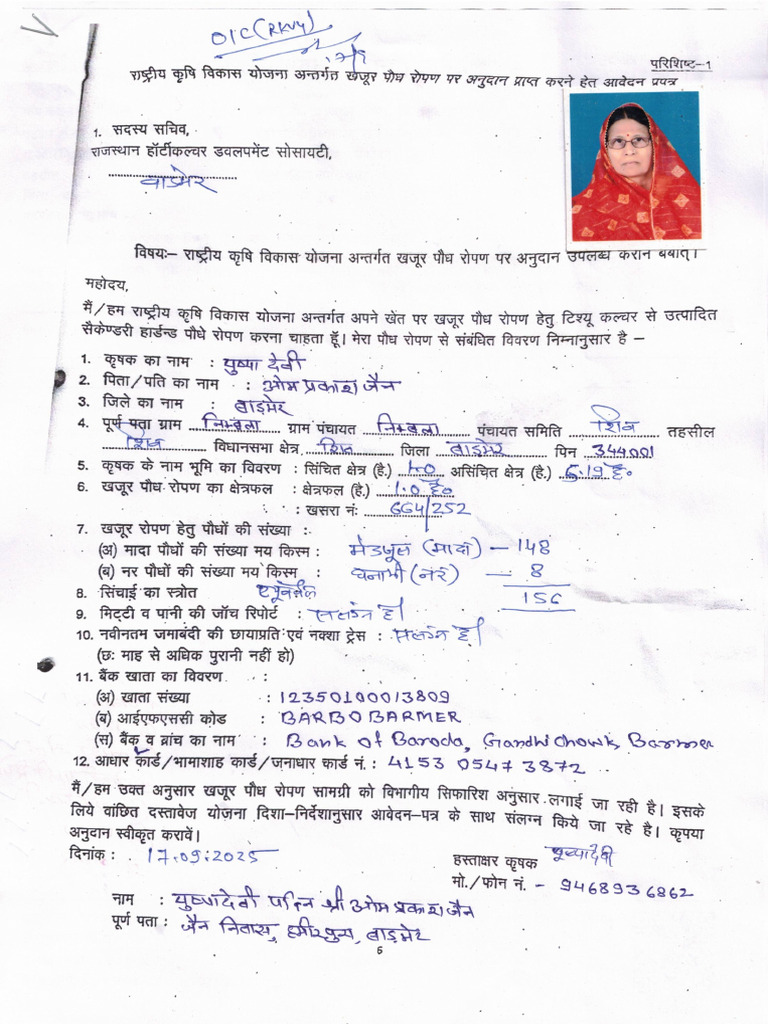 OIC (RKVY)
परिशिष्ट–1
राष्ट्रीय कृषि विकास योजना अन्तर्गत खजूर पौध रोपण पर अनुदान प्राप्त करने हेत आवेदन प्रपत्र
1. सदस्य सचिव,
राजस्थान हॉर्टीकल्चर डवलपमेंट सोसायटी,
बाडमेर
विषयः– राष्ट्रीय कृषि विकास योजना अन्तर्गत खजूर पौध रोपण पर अनुदान उपलब्ध कराने बाबत्।
महोदय,
मैं/हम राष्ट्रीय कृषि विकास योजना अन्तर्गत अपने खेत पर खजूर पौध रोपण हेतु टिश्यू कल्चर से उत्पादित
सैकेण्डरी हार्डन्ड पौधे रोपण करना चाहता हूँ। मेरा पौध रोपण से संबंधित विवरण निम्नानुसार है –
1. कृषक का नाम : पुष्पा देवी
2. पिता/पति का नाम : ओम प्रकाश जैन
3. जिले का नाम : बाड़मेर
4. पूर्ण पता ग्राम निम्बला ग्राम पंचायत निम्बला पंचायत समिति शिव तहसील
शिव विधानसभा क्षेत्र शिव जिला बाड़मेर पिन 344001
5. कृषक के नाम भूमि का विवरण : सिंचित क्षेत्र (है.) असिंचित क्षेत्र (है.) 5.19 है०
6. खजूर पौध रोपण का क्षेत्रफल : क्षेत्रफल (है.) 1.0 है०
: खसरा नंः 664/252
7. खजूर रोपण हेतु पौधों की संख्या :
(अ) मादा पौधों की संख्या मय किस्म : मेडजूल (मादा) – 148
(ब) नर पौधों की संख्या मय किस्म : घनामी (नर) – 8
8. सिंचाई का स्त्रोत ट्यूबवैल 156
9. मिट्टी व पानी की जॉच रिपोर्ट : सलंग्न है।
10. नवीनतम जमाबंदी की छायाप्रति एवं नक्शा ट्रेस : सलंग्न है।
(छः माह से अधिक पुरानी नहीं हो)
11. बैंक खाता का विवरण :
(अ) खाता संख्या : 12350100013809
(ब) आईएफएससी कोड : BARB0BARMER
(स) बैंक व ब्रांच का नाम : Bank of Baroda, Gandhi Chowk, Barmer
12. आधार कार्ड/भामाशाह कार्ड/जनाधार कार्ड नं. : 4153 0547 3872
मैं/हम उक्त अनुसार खजूर पौध रोपण सामग्री को विभागीय सिफारिश अनुसार लगाई जा रही है। इसके
लिये वांछित दस्तावेज योजना दिशा–निर्देशानुसार आवेदन–पत्र के साथ संलग्न किये जा रहे है। कृपया
अनुदान स्वीकृत करावें।
दिनांक : 17.09.2025
हस्ताक्षर कृषक पुष्पादेवी
मो./फोन नं. - 9468936862
नाम : पुष्पादेवी पत्नि श्री ओम प्रकाश जैन
पूर्ण पता : जैन निवास, हमीरपुरा, बाड़मेर
6